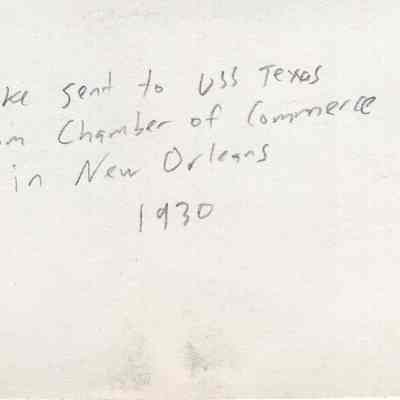 ke sent to USS Texas
om Chamber of Commerce
in New Orleans
1930